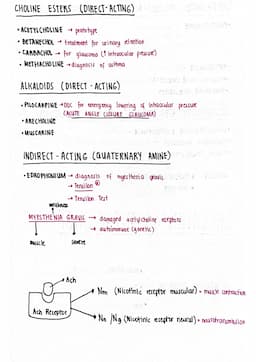 CHOLINE ESTERS (DIRECT-ACTING)
• ACETYLCHOLINE → prototype
• BETANECHOL → treatment for urinary retention
• CARBACHOL → for glaucoma (↑ intraocular pressure)
• METHACHOLINE → diagnosis of asthma
ALKALOIDS (DIRECT-ACTING)
• PILOCARPINE → DOC for emergency lowering of intraocular pressure
(ACUTE ANGLE CLOSURE GLAUCOMA)
• ARECHOLINE
• MUSCARINE
INDIRECT-ACTING (QUATERNARY AMINE)
• EDROPHONIUM → diagnosis of myesthenia gravis
→ Tensilon ®
→ Tensilon Test
weakness
MYESTHENIA GRAVIS → damaged acetylcholine receptors
→ autoimmune (genetic)
muscle
severe
Ach
Nm (Nicotinic receptor muscular) = muscle contraction
Ach Receptor
Nn / Ng (Nicotinic receptor neural) = neurotransmission